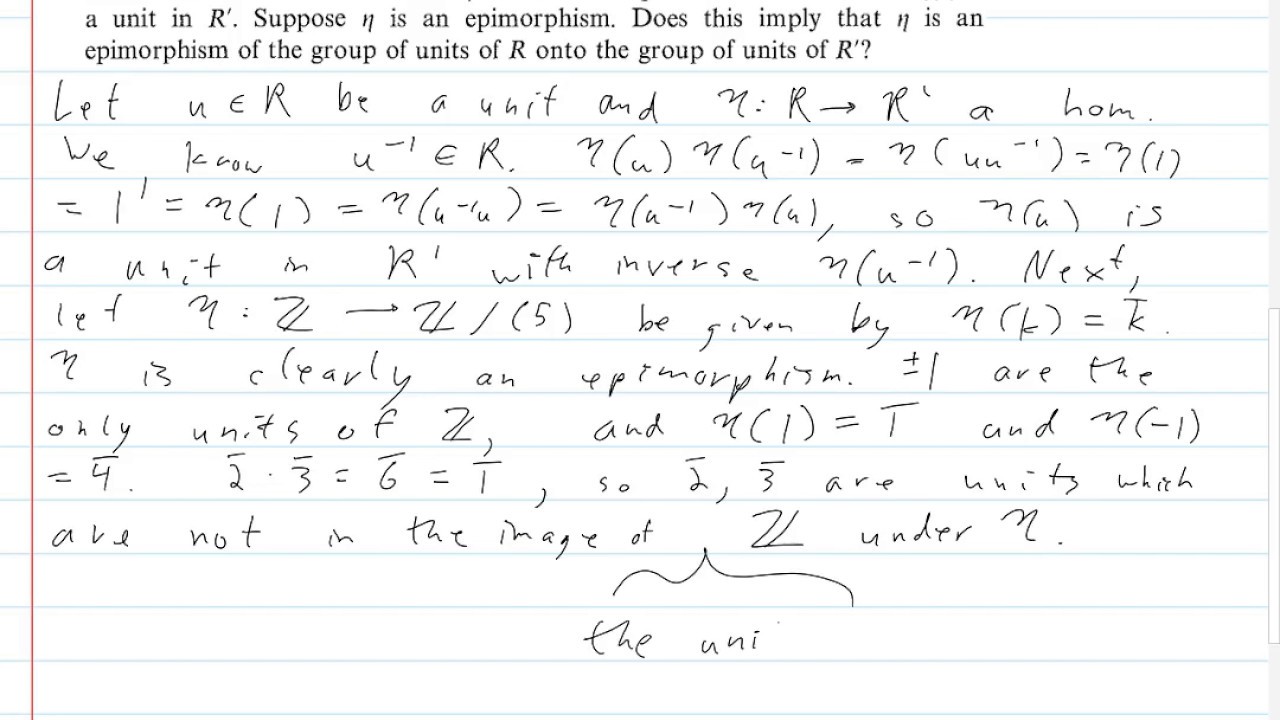 a unit in R′. Suppose η is an epimorphism. Does this imply that η is an
epimorphism of the group of units of R onto the group of units of R′?
Let u ∈ R be a unit and η: R → R' a hom.
We know u⁻¹ ∈ R. η(u) η(u⁻¹) = η(uu⁻¹) = η(1)
= 1' = η(1) = η(u⁻¹u) = η(u⁻¹) η(u), so η(u) is
a unit in R' with inverse η(u⁻¹). Next,
let η : ℤ → ℤ/(5) be given by η(k) = k̅.
η is clearly an epimorphism. ±1 are the
only units of ℤ, and η(1) = 1̅ and η(-1)
= 4̅. 2̅ · 3̅ = 6̅ = 1̅, so 2̅, 3̅ are units which
are not in the image of ℤ under η.
the uni